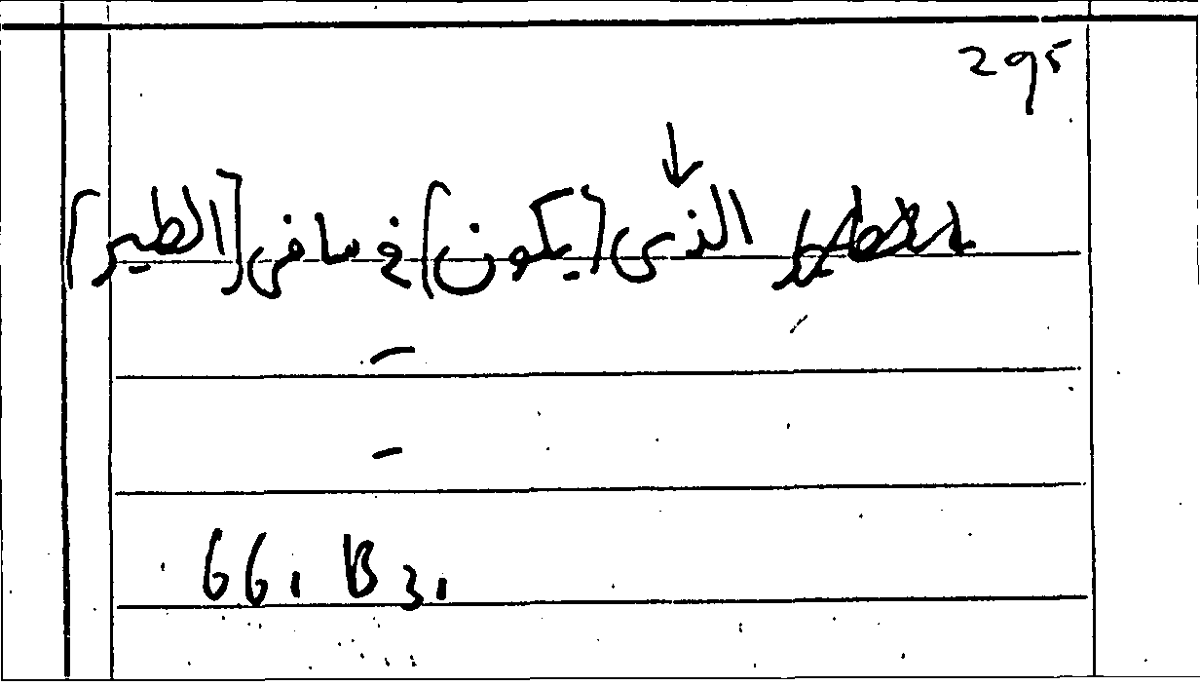 295
الذى [يكون] فى ساقى [الطير]
66, B3,